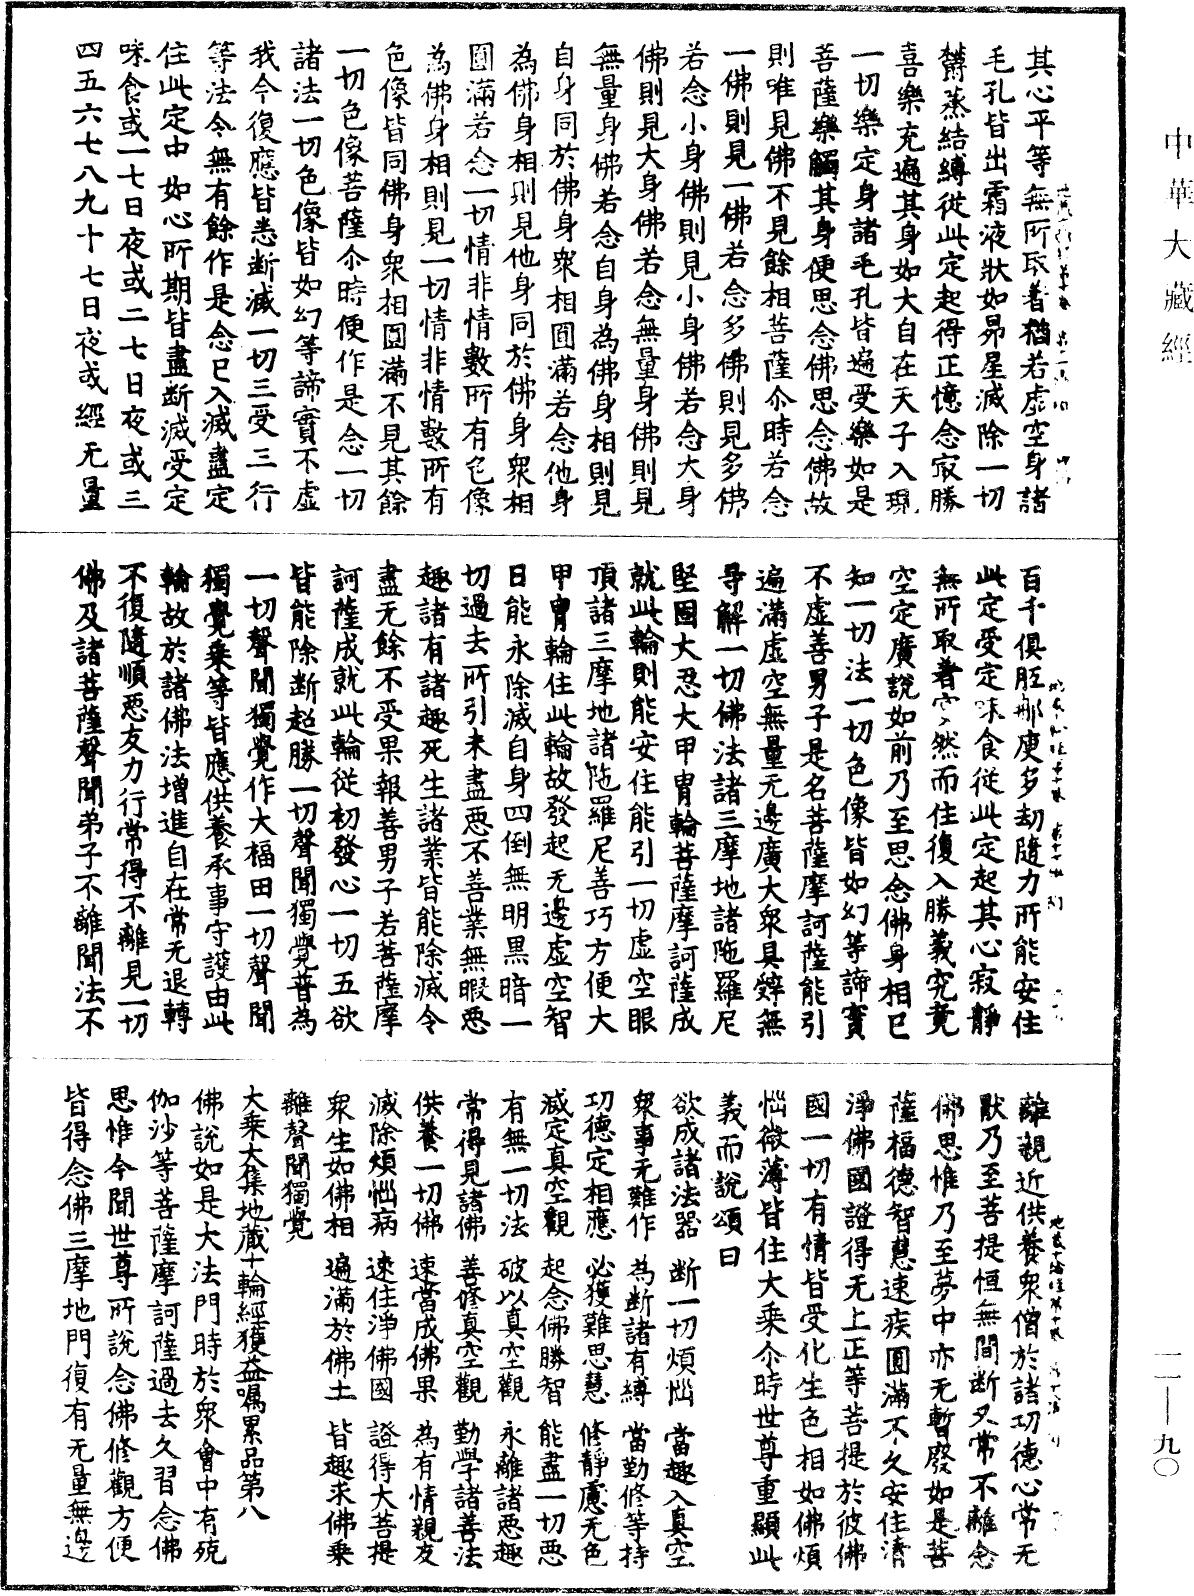 中華大藏經
其心平等無所取著猶若虛空身諸
毛孔皆出霜液狀如昴星滅除一切
欝蒸結縛從此定起得正憶念寂勝
喜樂充遍其身如大自在天子入現
一切樂定身諸毛孔皆遍受樂如是
菩薩樂觸其身便思念佛思念佛故
則唯見佛不見餘相菩薩尒時若念
一佛則見一佛若念多佛則見多佛
若念小身佛則見小身佛若念大身
佛則見大身佛若念無量身佛則見
無量身佛若念自身為佛身相則見
自身同於佛身眾相圓滿若念他身
為佛身相則見他身同於佛身眾相
圓滿若念一切情非情數所有色像
為佛身相則見一切情非情數所有
色像皆同佛身眾相圓滿不見其餘
一切色像菩薩尒時便作是念一切
諸法一切色像皆如幻等諦實不虛
我今復應皆悉斷滅一切三受三行
等法令無有餘作是念已入滅盡定
住此定中如心所期皆盡斷滅受定
味食或一七日夜或二七日夜或三
四五六七八九十七日夜或經无量
百千俱胝那庾多劫隨力所能安住
此定受定味食從此定起其心寂靜
無所取著安然而住復入勝義究竟
空定廣說如前乃至思念佛身相已
知一切法一切色像皆如幻等諦實
不虛善男子是名菩薩摩訶薩能引
遍滿虛空無量无邊廣大眾具辯無
导解一切佛法諸三摩地諸陁羅尼
堅固大忍大甲冑輪菩薩摩訶薩成
就此輪則能安住能引一切虛空眼
頂諸三摩地諸陁羅尼善巧方便大
甲冑輪住此輪故發起无邊虛空智
日能永除滅自身四倒無明黑暗一
切過去所引未盡惡不善業無暇惡
趣諸有諸趣死生諸業皆能除滅令
盡无餘不受果報善男子若菩薩摩
訶薩成就此輪從初發心一切五欲
皆能除斷超勝一切聲聞獨覺普為
一切聲聞獨覺作大福田一切聲聞
獨覺乘等皆應供養承事守護由此
輪故於諸佛法增進自在常无退轉
不復隨順惡友力行常得不離見一切
佛及諸菩薩聲聞弟子不離聞法不
離親近供養眾僧於諸功德心常无
猒乃至菩提恒無間斷又常不離念
佛思惟乃至夢中亦无暫廢如是菩
薩福德智慧速疾圓滿不久安住清
淨佛國證得无上正等菩提於彼佛
國一切有情皆受化生色相如佛煩
惱微薄皆住大乘尒時世尊重顯此
義而說頌曰
欲成諸法器　斷一切煩惱　當趣入真空
眾事无難作　為斷諸有縛　當勤修等持
功德定相應　必獲難思慧　修靜慮无色
滅定真空觀　起念佛勝智　能盡一切惡
有無一切法　破以真空觀　永離諸惡趣
常得見諸佛　善修真空觀　勤學諸善法
供養一切佛　速當成佛果　為有情親友
滅除煩惱病　速住淨佛國　證得大菩提
眾生如佛相　遍滿於佛土　皆趣求佛乘
離聲聞獨覺
大乘大集地藏十輪經獲益囑累品第八
佛說如是大法門時於眾會中有殑
伽沙等菩薩摩訶薩過去久習念佛
思惟今聞世尊所說念佛修觀方便
皆得念佛三摩地門復有无量無邊
一一—九〇